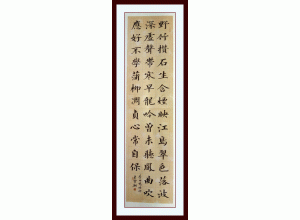 野竹攢石生含煙映江島翠色落波
深虛聲帶寒早龍吟曾未聽鳳曲吹
應好不學蒲柳凋貞心常自保